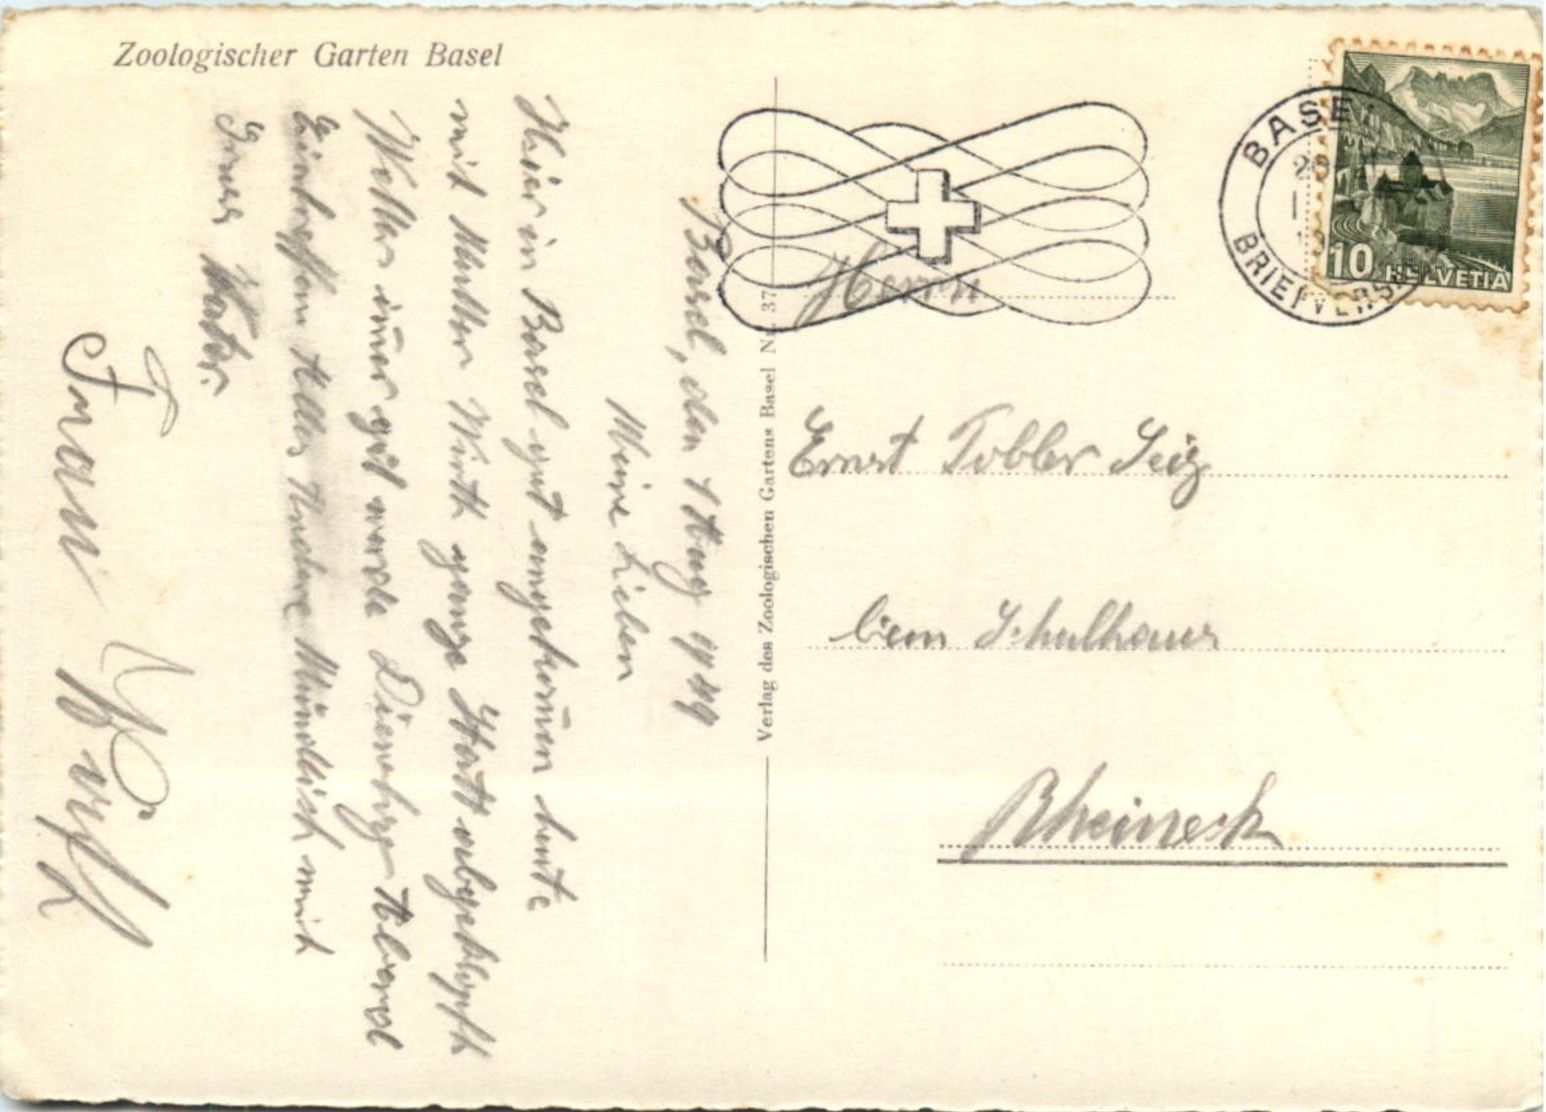 Zoologischer Garten Basel
Basel, den 1 Aug 1949
Meine Lieben
Hier in Basel gut angekomen heute
mit Mutter Wirth ganze Statt abgeklopft
Wetter imer gut werde Dienstag Abend
Eintreffen Alles Andere Mündlich mit
Grus Vater.
Frau Wirth
Verlag des Zoologischen Gartens Basel No. 37
BASEL
BRIEFVERS
10 HELVETIA
Herrn
Ernst Tobler
beim Schulhaus
Rheineck